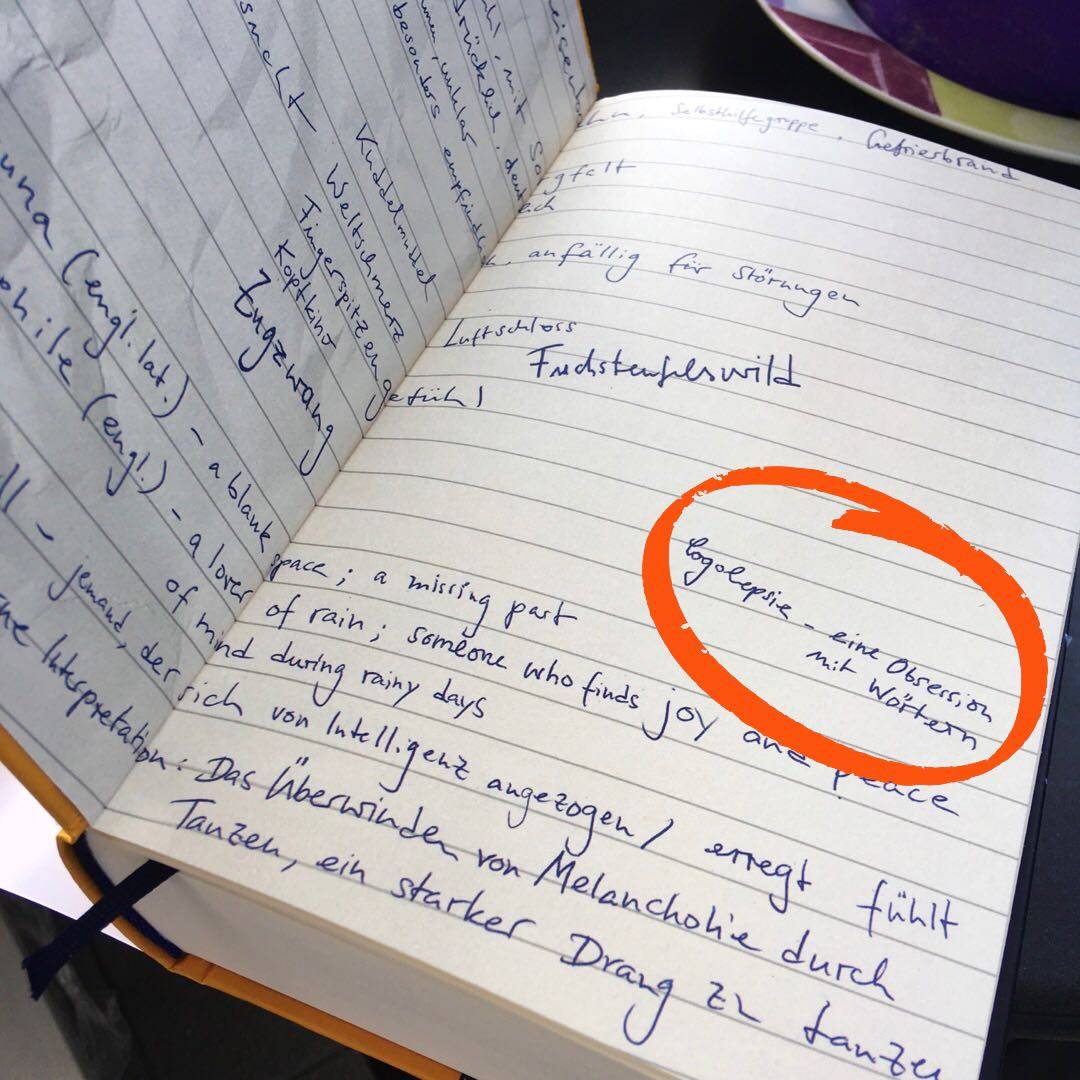 Selbsthilfegruppe, Gefrierbrand
mit
unklar
besonders empfindlich, anfällig für Störungen
Kuddelmuddel
Luftschloss
Weltschmerz
Fuchsteufelswild
Fingerspitzengefühl
Kopfkino
Zugzwang
Logolepsie - eine Obsession
mit Wörtern
una (engl. lat.) - a blank space; a missing part
phile (engl.) - a lover of rain; someone who finds joy and peace
of mind during rainy days
ll - jemand, der sich von Intelligenz angezogen / erregt fühlt
Interpretation: Das Überwinden von Melancholie durch
Tanzen, ein starker Drang zu tanzen